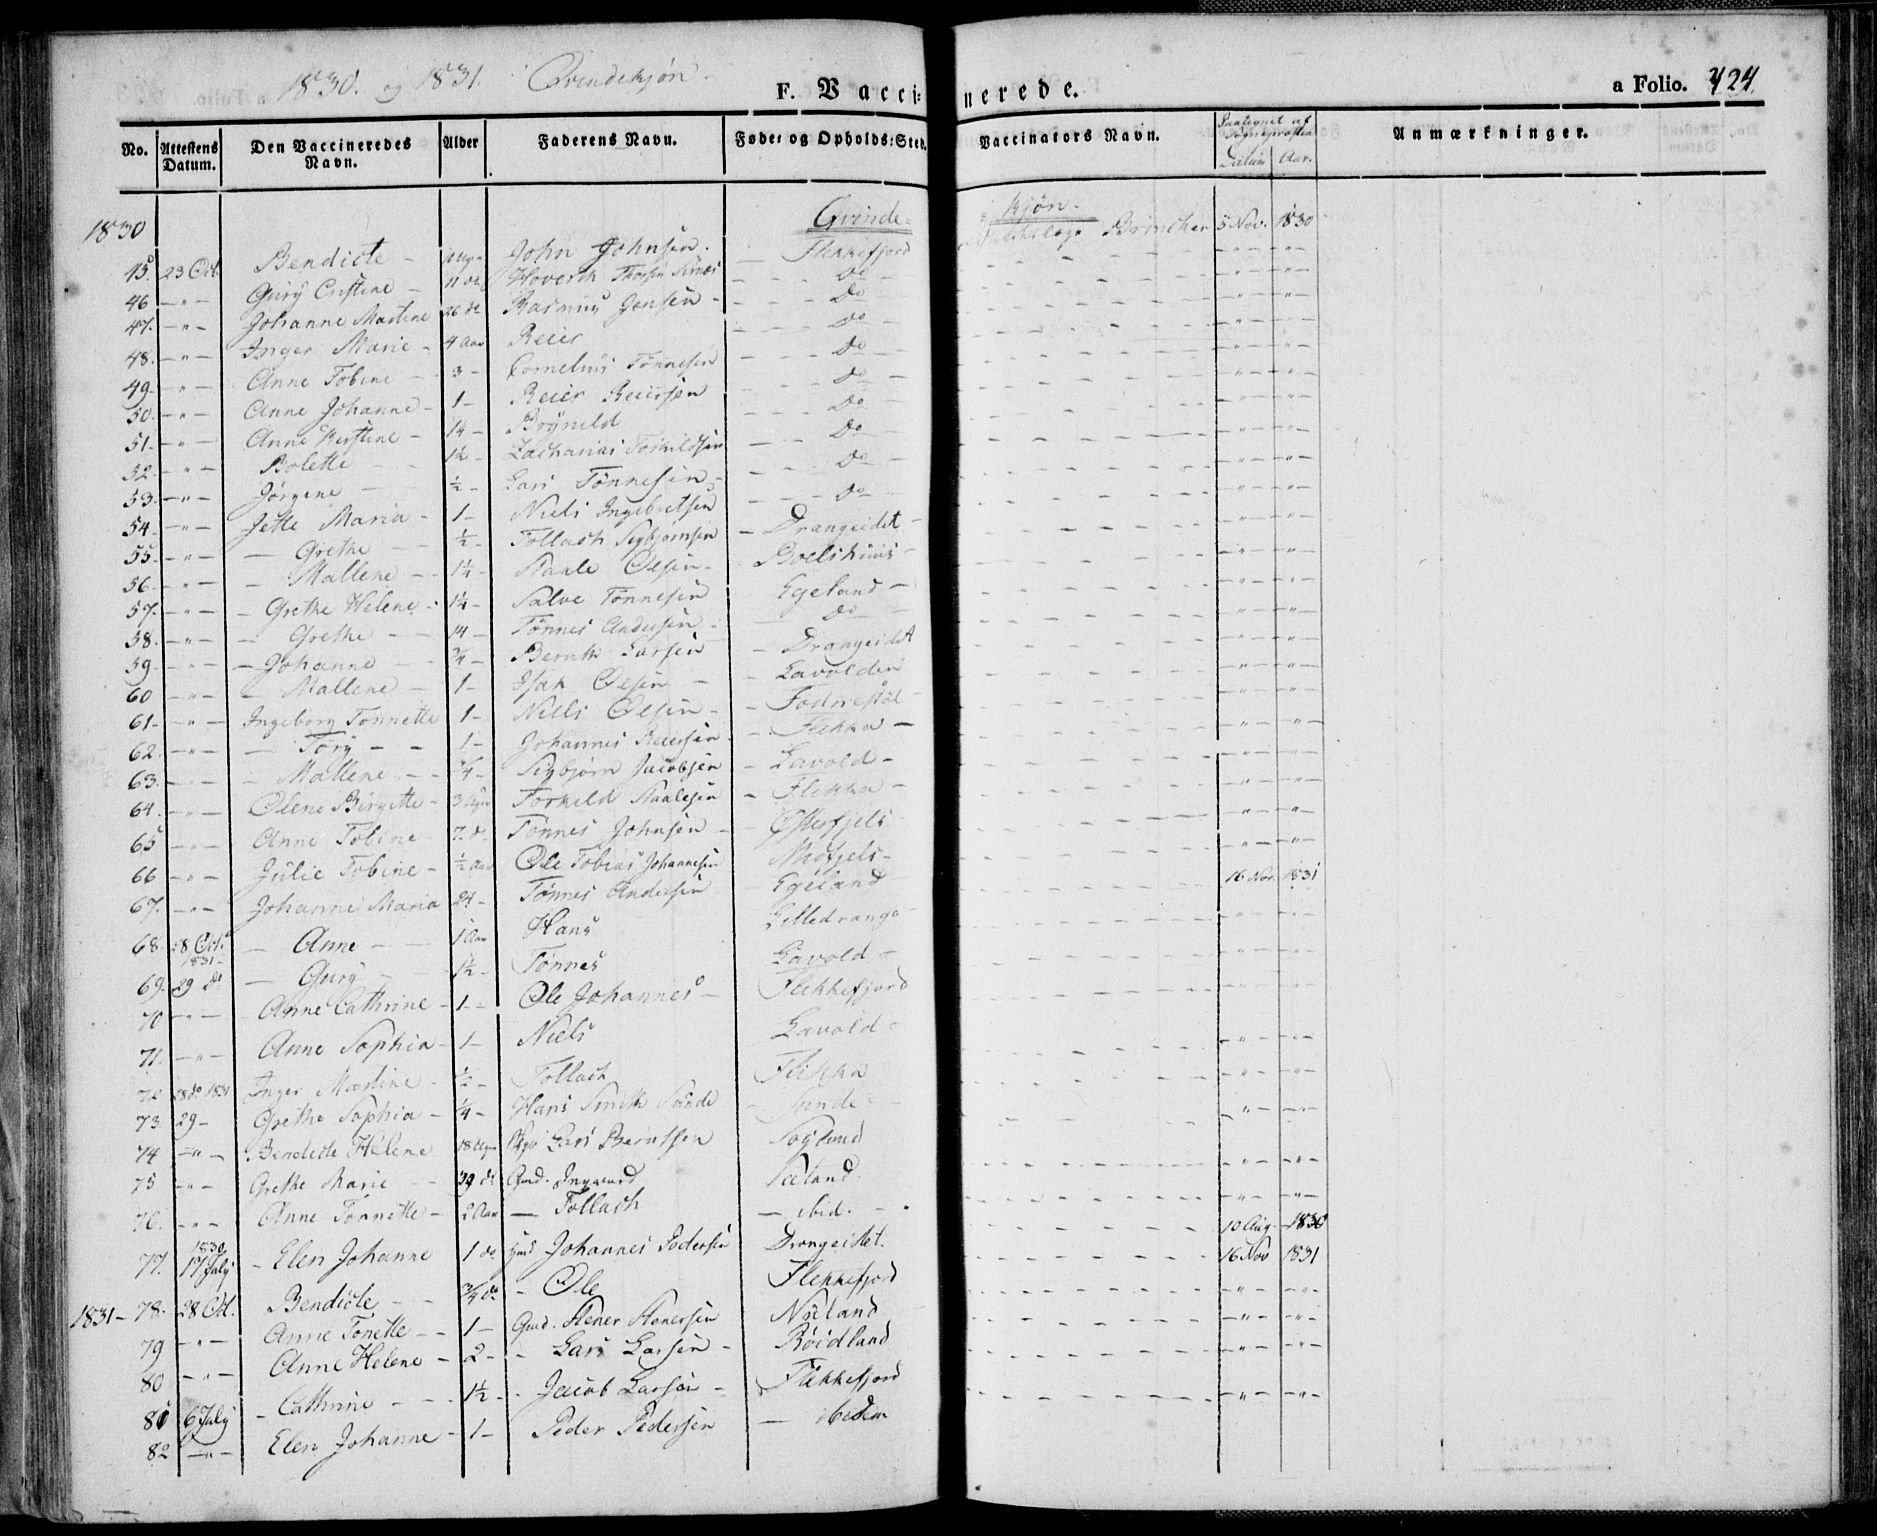 1830. og 1831. Qvindekjøn.
F. Vaccinerede. a Folio. 424
No. Attestens Datum. Den Vaccineredes Navn. Alder Faderens Navn. Føde- og Opholds-Sted. Vaccinators Navn. Datum Aar. Anmærkninger.
1830 Qvinde- kjøn.
45. 23 Oct. Bendicte - 10 Uger John Johnsen. Flekkefjord Brincher 5 Nov. 1830
46 - " - Gurÿ Cristine - 11 do Hoverth - - do - " - - " -
47. - " - Johanne Martine 26 do Rasmus Jensen - - - do - " - - " -
48. - " - Inger Marie - 4 Aar Reier - - do - " - - " -
49. - " - Anne Tobine 3 - Cornelius Tønnesen - - do - " - - " -
50. - " - Anne Johanne - 1 - Reier Reiersen - - do - " - - " -
51. - " - Anne Kirstine - 1¼ - Brÿnild - - do - " - - " -
52. - " - Bolette - 1½ - Zacharias Torkildsen - - do - " - - " -
53. - " - Jørgine ½ - Lars Tønnesen - - - do - " - - " -
54. - " - Jette Maria - 1 - Niels Ingebretsen - - do - " - - " -
55. - " - Grethe ½ - Tollach Sigbjørnsen - Drangeidet - " - - " -
56. - " - Mallene - 1¼ - Staale Olsen - Boelshuus - " - - " -
57. - " - Grethe Helene - 1¼ - Salve Tønnesen Egeland - - " - - " -
58. - " - Grethe - 14 - Tønnes Andersen - do - " - - " -
59. - " - Johanne ¾ - Bernth Larsen - Drangeidet - " - - " -
60 - " - Mallene - 1 - Isak Olsen - Lavolden - " - - " -
61. - " - Ingeborg Tønnette 1 - Niels Olsen - - Fodnestøl - " - - " -
62. - " - Torÿ - - 1 - Johannes Reiersen - Flikka - - " - - " -
63. - " - Mallene - - ¾ - Sigbjørn Jacobsen - Lavold - - " - - " -
64. - " - Olene Birgitte - 3 Uger Torkild Staalesen - Flikka - - " - - " -
65 - " - Anne Tobine 7. do Tønnes Johnsen - Østerfjels - " - - " -
66 - " - Julie Tobine - ½ Aar Ole Tobias Johannesen Midfjels - - " - - " -
67. - " - Johanne Maria 24 - Tønnes Andersen Egeland 16 Nov. 1831
68. 28 Oct. 1831 - Anne - 1 Aar Hans Lilledrange - " - - " -
69. 29 do - Gurÿ - 1½ - Tønnes Lavold - - " - - " -
70 - " - Anne Cathrine - 1 - Ole Johannes - Flekkefjord - " - - " -
71. - " - Anne Sophia - 1 - Niels Lavold - - " - - " -
72 28 do 1831 Inger Martine - ½ - Tollach Flikka - " - - " -
73. 29 - Grethe Sophia - ¼ - Hans Smith Sunde - Sunde - - " - - " -
74 - " - Bendicte Helene 18 Uger Lars Berntsen Logsund - " - - " -
75 - " - Grethe Marie - 39 do Gmd. Ingward - " - - " -
76. - " - Anne Tønnette - 2 Aar - Tollach - ibid. - - " - - " -
77. 1830 17 July - Elen Johanne 1 do Johannes Pedersen Drangeidet. 10 Aug - 1830
1831 - 78. 28 Oct. Bendicte - - ¾ do - Ole Flekkefjord 16 Nov 1831
79 - " - Anne Tonette - - 1 - Gmd. Stener Stenersen Nuland - " - - " -
80 - " - Anne Helene - 2 - - Lars Larsen - Røidland - " - - " -
81 6 July - Cathrine - - 1½ - - Jacob Larsen - Flekkefjord - " - - " -
82 - " - Elen Johanne - 1 - Peder Pedersen - ibidem - " - - " -